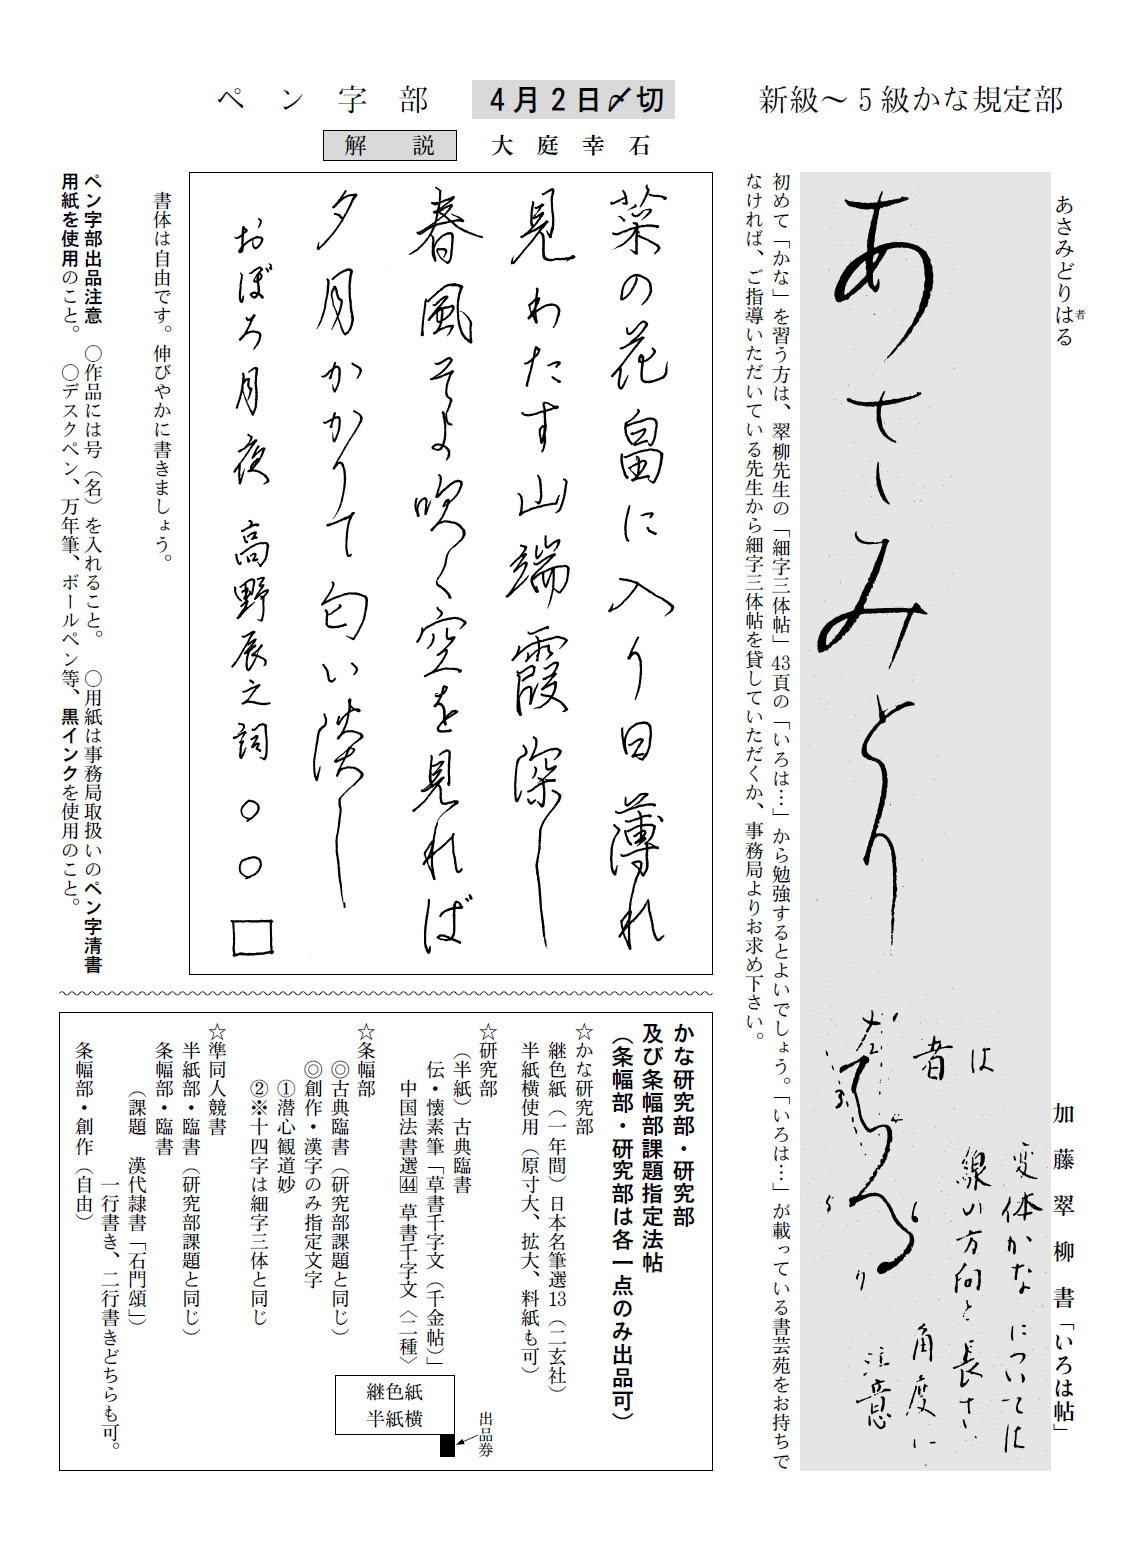 新級〜5級かな規定部
あさみどりはる
者
加藤翠柳書「いろは帖」
あさみとりはる
は
者
変体かなについては
線の方向と長さ
角度に
注意
5
6
り
初めて「かな」を習う方は、翠柳先生の「細字三体帖」43頁の「いろは…」から勉強するとよいでしょう。「いろは…」が載っている書芸苑をお持ちで
なければ、ご指導いただいている先生から細字三体帖を貸していただくか、事務局よりお求め下さい。
ペン字部
4月2日〆切
解説
大庭幸石
菜の花畠に入り日薄れ
見わたす山端霞深し
春風そよ吹く空を見れば
夕月かかりて匂い淡し
おぼろ月夜 高野辰之詞 ○○□
書体は自由です。伸びやかに書きましょう。
ペン字部出品注意 ○作品には号（名）を入れること。 ○用紙は事務局取扱いのペン字清書
用紙を使用のこと。 ○デスクペン、万年筆、ボールペン等、黒インクを使用のこと。
かな研究部・研究部
及び条幅部課題指定法帖
（条幅部・研究部は各一点のみ出品可）
☆かな研究部
継色紙（一年間）日本名筆選13（二玄社）
半紙横使用（原寸大、拡大、料紙も可）
☆研究部
（半紙）古典臨書
伝・懐素筆「草書千字文（千金帖）」
中国法書選44 草書千字文〈二種〉
☆条幅部
◎古典臨書（研究部課題と同じ）
◎創作・漢字のみ指定文字
①潜心観道妙
②※十四字は細字三体と同じ
☆準同人競書
半紙部・臨書（研究部課題と同じ）
条幅部・臨書
（課題 漢代隷書「石門頌」）
一行書き、二行書きどちらも可。
条幅部・創作（自由）
継色紙
半紙横
出品券